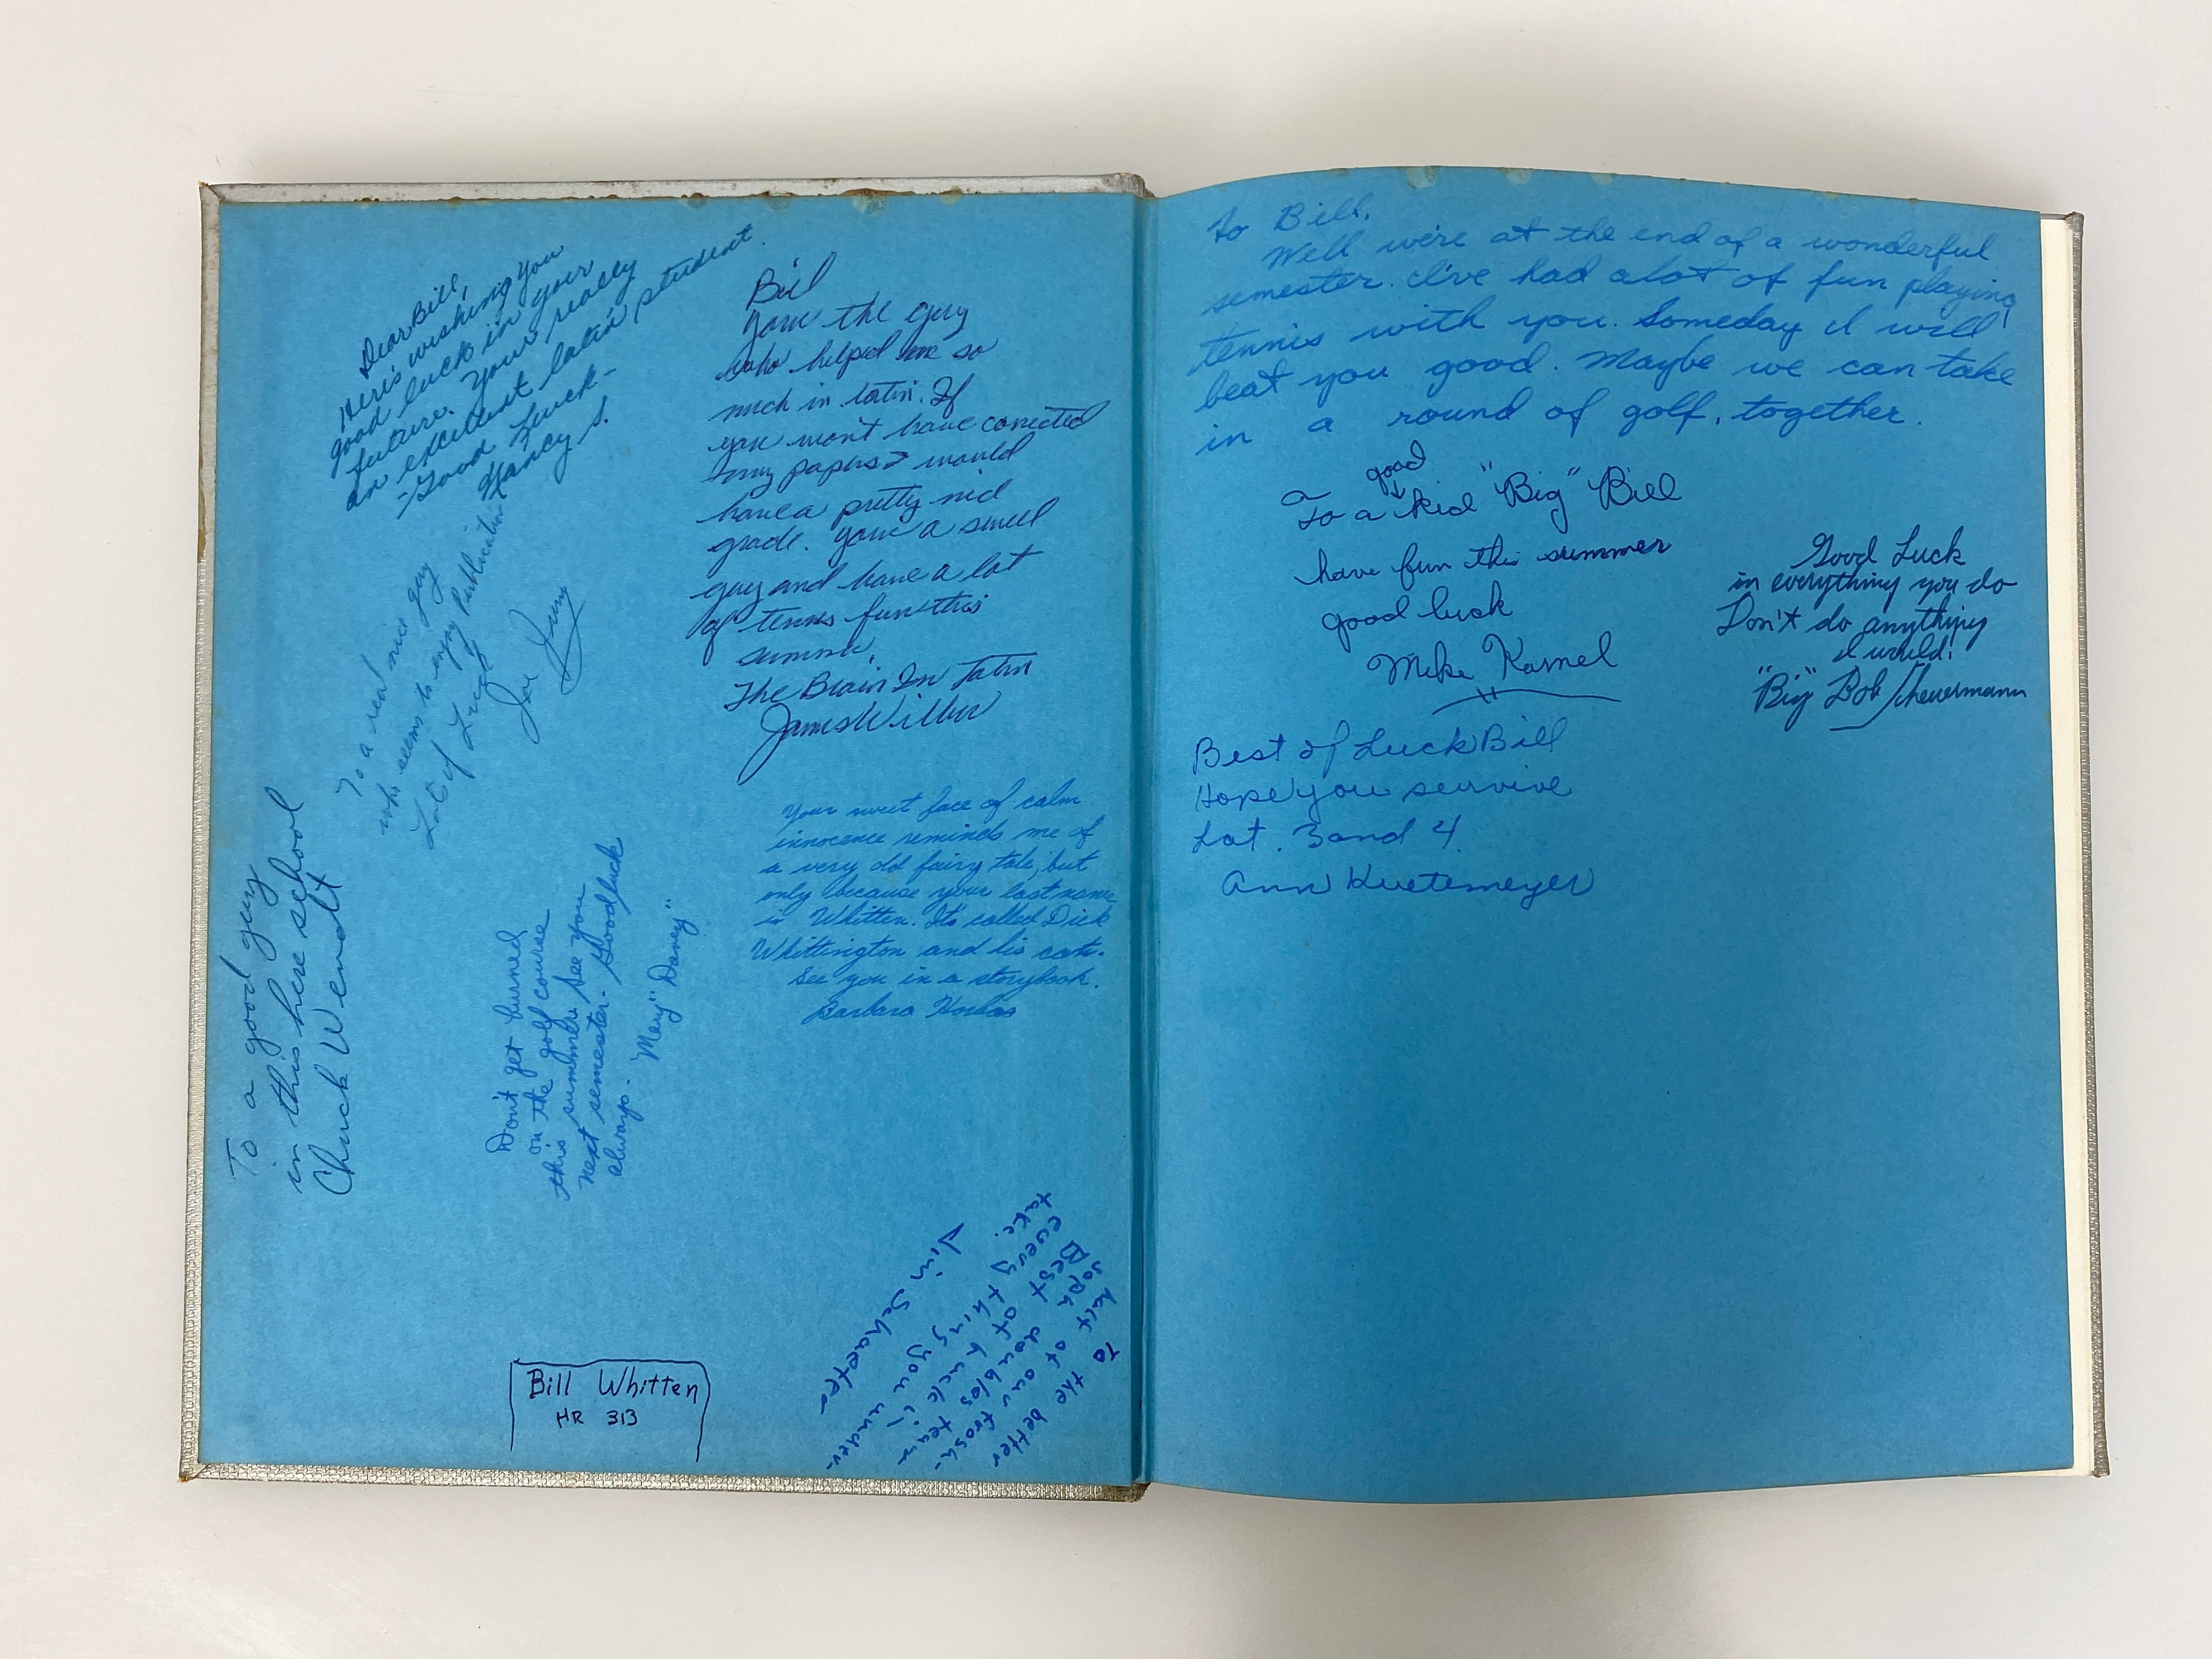 Dear Bill,
Here's wishing you
good luck in your
future. Your really
an excellent latin student.
Good Luck-
Nancy S.
To a real nice guy
who seems to enjoy Publication
Lots of Luck
Joe
To a good guy
in this here school
Chuck Wendt
Bill
your the guy
who helped me so
much in latin. If
you wont have corrected
my papers I would
have a pretty nid
grade. your a swell
guy and have a lot
of tennis fun this
summer.
The Brain In Latin
James Wilber
Your sweet face of calm
innocence reminds me of
a very old fairy tale, but
only because your last name
is Whitten. It's called Dick
Whittington and his cat.
See you in a storybook.
Barbara
Don't get burned
on the golf course
this summer. See you
next semester. Good luck
always.
"Mary" Davey
To the better
half of our frosh-
soph doubles team
Best of luck in
every thing you under-
take.
Jim Schaefer
Bill Whitten
HR 313
To Bill,
Well we're at the end of a wonderful
semester. I've had alot of fun playing
tennis with you. Someday I will
beat you good. Maybe we can take
in a round of golf, together.
To a good kid "Big" Bill
have fun this summer
good luck
Mike Kamel
Good Luck
in everything you do
Don't do anything
I would!
"Big" Bob Scheuermann
Best of Luck Bill
Hope you survive
Lat. 3 and 4.
Ann Kuetemeyer